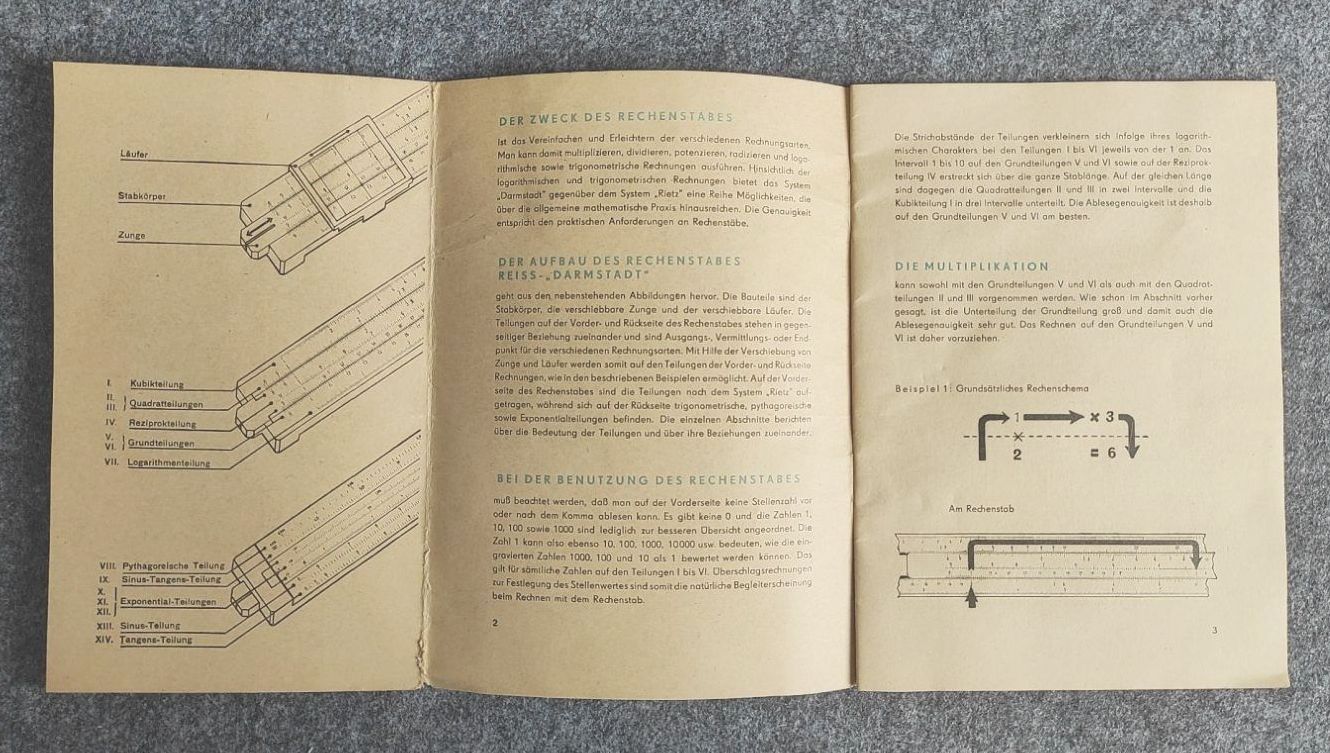 Läufer
Stabkörper
Zunge
I. Kubikteilung
II.
III. Quadratteilungen
IV. Reziprokteilung
V.
VI. Grundteilungen
VII. Logarithmenteilung
VIII. Pythagoreische Teilung
IX. Sinus-Tangens-Teilung
X.
XI. Exponential-Teilungen
XII.
XIII. Sinus-Teilung
XIV. Tangens-Teilung
DER ZWECK DES RECHENSTABES
ist das Vereinfachen und Erleichtern der verschiedenen Rechnungsarten.
Man kann damit multiplizieren, dividieren, potenzieren, radizieren und loga-
rithmische sowie trigonometrische Rechnungen ausführen. Hinsichtlich der
logarithmischen und trigonometrischen Rechnungen bietet das System
„Darmstadt“ gegenüber dem System „Rietz“ eine Reihe Möglichkeiten, die
über die allgemeine mathematische Praxis hinausreichen. Die Genauigkeit
entspricht den praktischen Anforderungen an Rechenstäbe.
DER AUFBAU DES RECHENSTABES
REISS-„DARMSTADT“
geht aus den nebenstehenden Abbildungen hervor. Die Bauteile sind der
Stabkörper, die verschiebbare Zunge und der verschiebbare Läufer. Die
Teilungen auf der Vorder- und Rückseite des Rechenstabes stehen in gegen-
seitiger Beziehung zueinander und sind Ausgangs-, Vermittlungs- oder End-
punkt für die verschiedenen Rechnungsarten. Mit Hilfe der Verschiebung von
Zunge und Läufer werden somit auf den Teilungen der Vorder- und Rückseite
Rechnungen, wie in den beschriebenen Beispielen ermöglicht. Auf der Vorder-
seite des Rechenstabes sind die Teilungen nach dem System „Rietz“ auf-
getragen, während sich auf der Rückseite trigonometrische, pythagoreische
sowie Exponentialteilungen befinden. Die einzelnen Abschnitte berichten
über die Bedeutung der Teilungen und über ihre Beziehungen zueinander.
BEI DER BENUTZUNG DES RECHENSTABES
muß beachtet werden, daß man auf der Vorderseite keine Stellenzahl vor
oder nach dem Komma ablesen kann. Es gibt keine 0 und die Zahlen 1,
10, 100 sowie 1000 sind lediglich zur besseren Übersicht angeordnet. Die
Zahl 1 kann also ebenso 10, 100, 1000, 10000 usw. bedeuten, wie die ein-
gravierten Zahlen 1000, 100 und 10 als 1 bewertet werden können. Das
gilt für sämtliche Zahlen auf den Teilungen I bis VI. Überschlagsrechnungen
zur Festlegung des Stellenwertes sind somit die natürliche Begleiterscheinung
beim Rechnen mit dem Rechenstab.
2
Die Strichabstände der Teilungen verkleinern sich infolge ihres logarith-
mischen Charakters bei den Teilungen I bis VI jeweils von der 1 an. Das
Intervall 1 bis 10 auf den Grundteilungen V und VI sowie auf der Reziprok-
teilung IV erstreckt sich über die ganze Stablänge. Auf der gleichen Länge
sind dagegen die Quadratteilungen II und III in zwei Intervalle und die
Kubikteilung I in drei Intervalle unterteilt. Die Ablesegenauigkeit ist deshalb
auf den Grundteilungen V und VI am besten.
DIE MULTIPLIKATION
kann sowohl mit den Grundteilungen V und VI als auch mit den Quadrat-
teilungen II und III vorgenommen werden. Wie schon im Abschnitt vorher
gesagt, ist die Unterteilung der Grundteilung groß und damit auch die
Ablesegenauigkeit sehr gut. Das Rechnen auf den Grundteilungen V und
VI ist daher vorzuziehen.
Beispiel 1: Grundsätzliches Rechenschema
1 × 3
×
2 = 6
Am Rechenstab
3